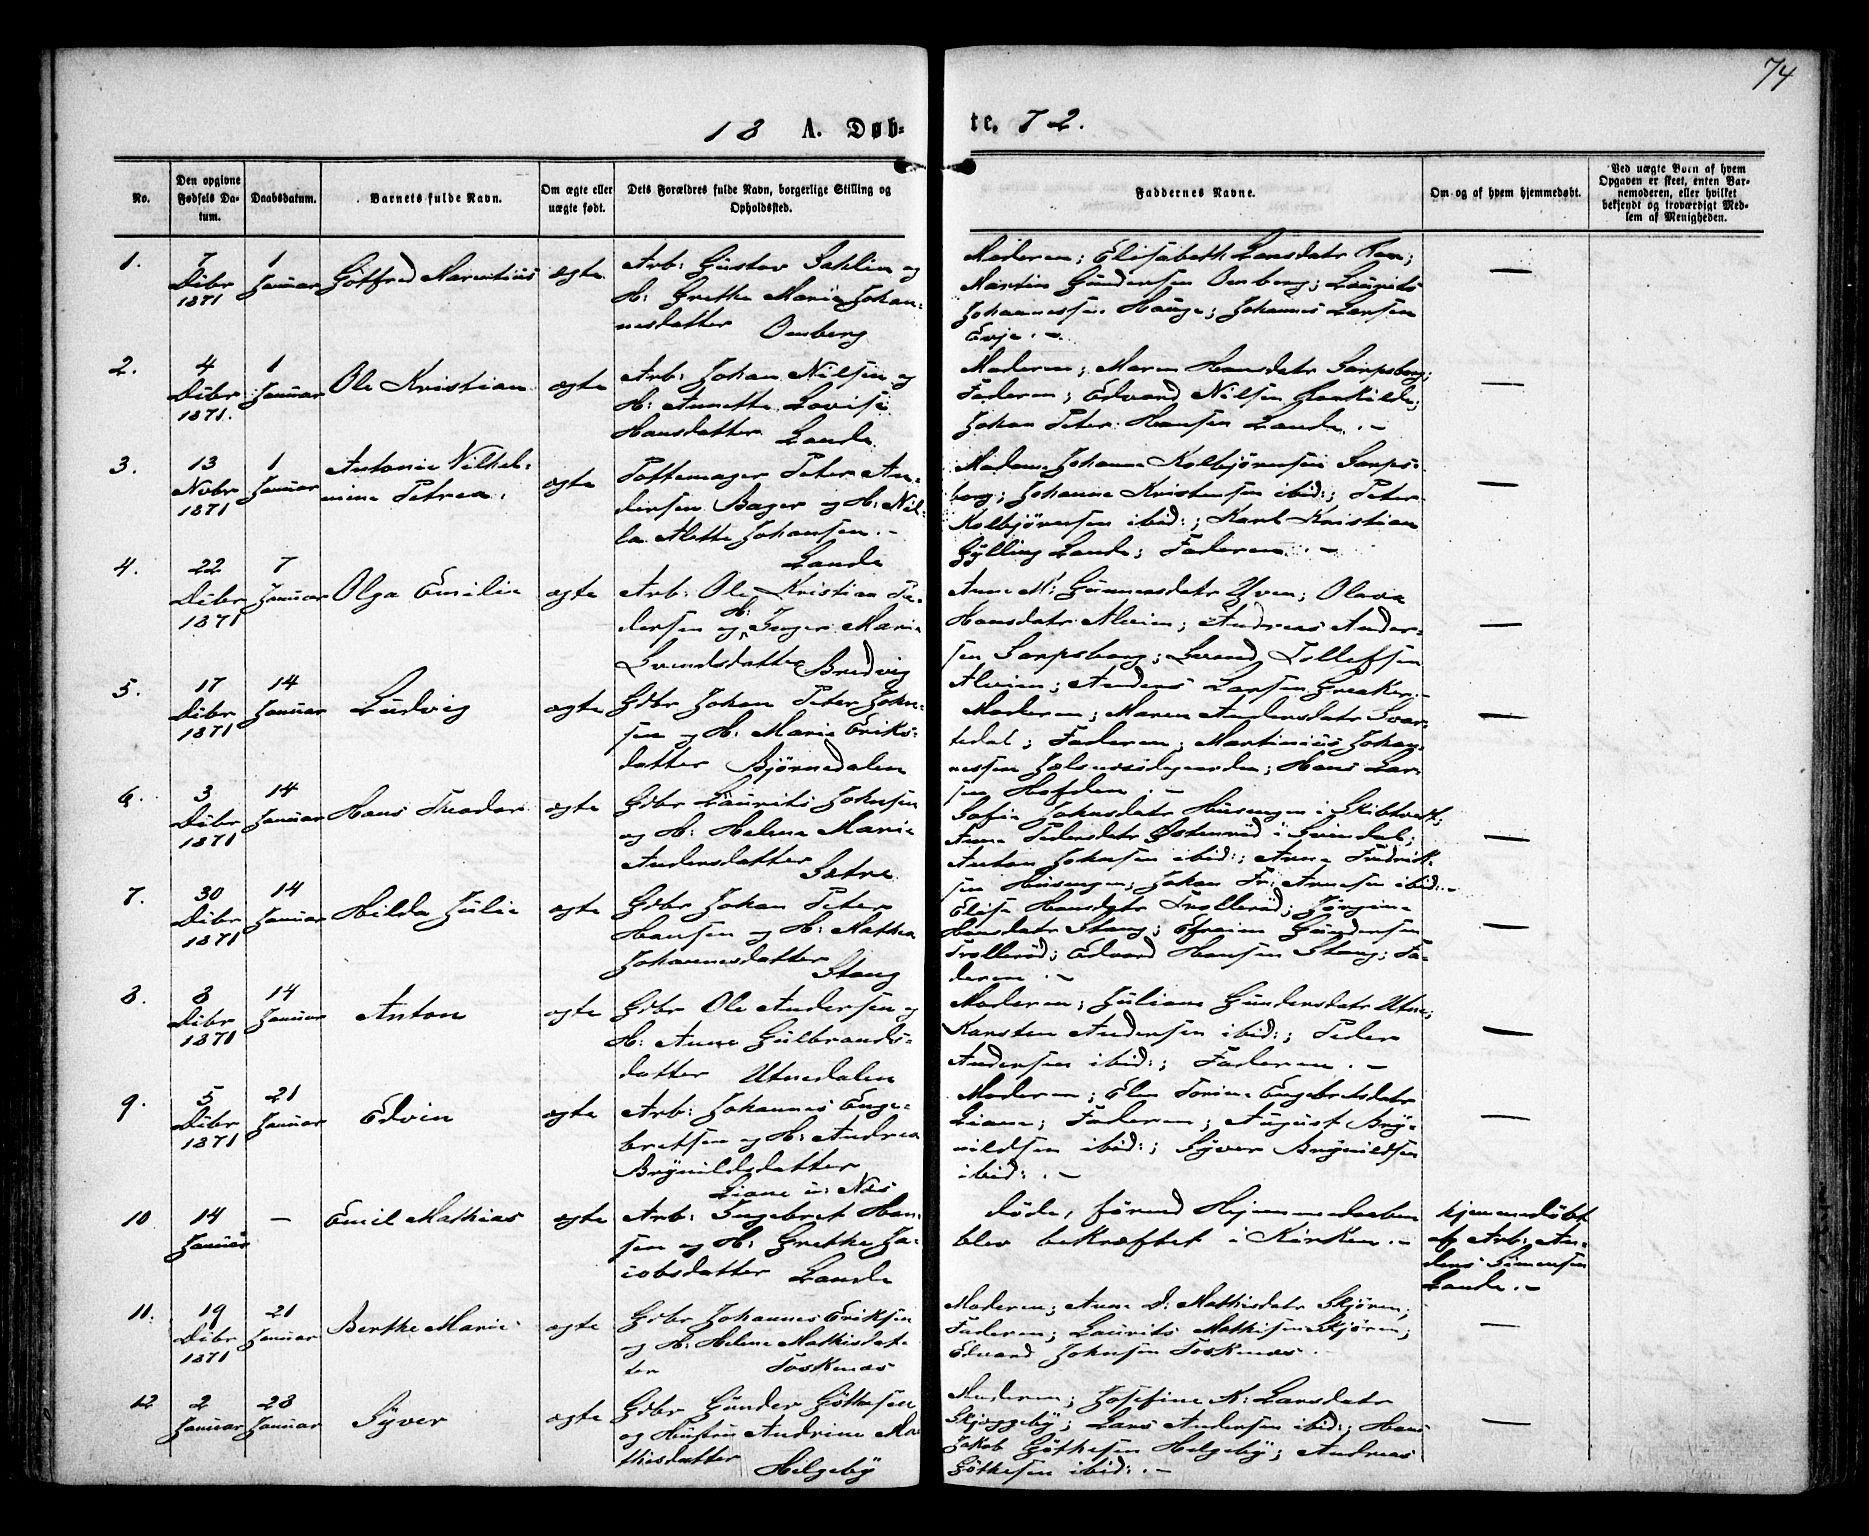 74
18 A. Døb-
te. 72.
No.
Den opgivne
Fødsels Da-
tum.
Daabsdatum.
Barnets fulde Navn.
Om ægte eller
uægte født.
Dets Forældres fulde Navn, borgerlige Stilling og
Opholdssted.
Faddernes Navne.
Om- og af hvem hjemmedøbt.
Ved uægte Børn af hvem
Opgaven er skeet, enten Bar-
nemoderen, eller hvilket
bekjendt og troværdigt Med-
lem af Menigheden.
1.
7
Dcbr
1871
1
Januar
Götfred Marentius
ægte
Arb: Gustav Sahlin og
H: Grethe Marie Johan-
nesdatter Omberg
Moderen; Elisabeth Larsdatr
Martin Gundersen Omberg; Laurits
Johannessen Hauge; Johannes Larsen
Evje. -
—
2.
4
Dcbr
1871.
1
Januar
Ole Kristian
ægte
Arb: Johan Nilsen og
H: Anette Lovise
Hansdatter Lande
Moderen; Maren Hansdatr Sarpsborg;
Faderen; Edvard Nilsen
Johan Peter Hansen Lande. -
—
3.
13
Nvbr
1871
1
Januar
Antonie Vilhel-
mine Petrea.
ægte
Pottemager Peter An-
dersen Bager og H: Nil-
la Alette Johansen. -
Lande
Madam Johanne Kolbjörnsen Sarps-
borg; Johanne Kristensen ibid:; Peter
Kolbjörnsen ibid:; Karl Kristian
Gylling Lande; Faderen. -
—
4.
22
Dcbr
1871
7
Januar
Olga Emilie
ægte
Arb: Ole Kristian Pe-
dersen og H: Inger Marie
Svendsdatter Bredvig
Anne M: Gunnersdatr Yven; Olava
Hansdatr Alvim; Andreas Ander-
sen Sarpsborg; Svend Tollefsen
Alvim; Anders Larsen Greaker. -
—
5.
17
Dcbr
1871
14
Januar
Ludvig
ægte
Gdbr Johan Peter John-
sen og H: Marie Eriks-
datter Björnedalen
Moderen; Maren Andersdatr Svar-
tedal; Faderen; Martinius Johan-
nessen; Hans Lar-
sen Hafslen. -
—
6.
3
Dcbr
1871
14
Januar
Hans Theodor
ægte
Gdbr Laurits Johnsen
og H: Helene Marie
Andersdatter Sætre
Sofie Johnsdatr Husengen i Skibtvedt;
Anne Pedersdatr Østenröd i Svindal;
Anton Johnsen ibid:; Arne Fredrik-
sen Husengen; Johan Fr: Arnesen ibid:. -
—
7.
30
Dcbr
1871
14
Januar
Hilda Julie
ægte
Gdbr Johan Peter
Hansen og H: Mathea
Johannesdatter
Stang
Elise Hansdatr Trolleröd; Jörgine
Hansdatr Stang; Efraim Gundersen
Trolleröd; Edvard Hansen Stang; Fa-
deren. -
—
8.
8
Dcbr
1871
14
Januar
Anton
ægte
Gdbr Ole Andersen og
H: Anne Gulbrands-
datter Utnedalen
Moderen; Juliane Gundersdatr Utne;
Karsten Andersen ibid:; Peder
Andersen ibid:; Faderen. -
—
9.
5
Dcbr
1871
21
Januar
Edvin
ægte
Arb: Johannes Enge-
bretsen og H: Andrea
Brynildsdatter
Liane u: Næs
Moderen; Elen Torine Engebretsdatr
Liane; Faderen; August Bry-
nildsen ibid:; Syver Brynildsen
ibid:. -
—
10
14
Januar
—
Emil Mathias
ægte
Arb: Ingebret Han-
sen og H: Grethe Ja-
cobsdatter Lande
döde, förend Hjemmedaaben
blev bekræftet i Kirken. -
hjemmedöbt
af Arb: An-
ders Simensen
Lande. -
11.
19
Dcbr
1871
21
Januar
Berthe Marie
ægte
Gdbr Johannes Eriksen
og H: Helene Mathisdat-
ter Toskenæs
Moderen; Anne D: Mathisdatr Skjören;
Faderen; Laurits Mathisen Skjören;
Edvard Johnsen Toskenæs. -
—
12
2
Januar
28
Januar
Syver
ægte
Gdbr Gunder Göthesen
og Hustru Andrine Ma-
thisdatter
Helgeby
Moderen; Josefine K: Larsdatr
Skjæggeby; Lars Andersen ibid:; Hans
Jakob Göthesen Helgeby; Andreas
Göthesen ibid:. -
—